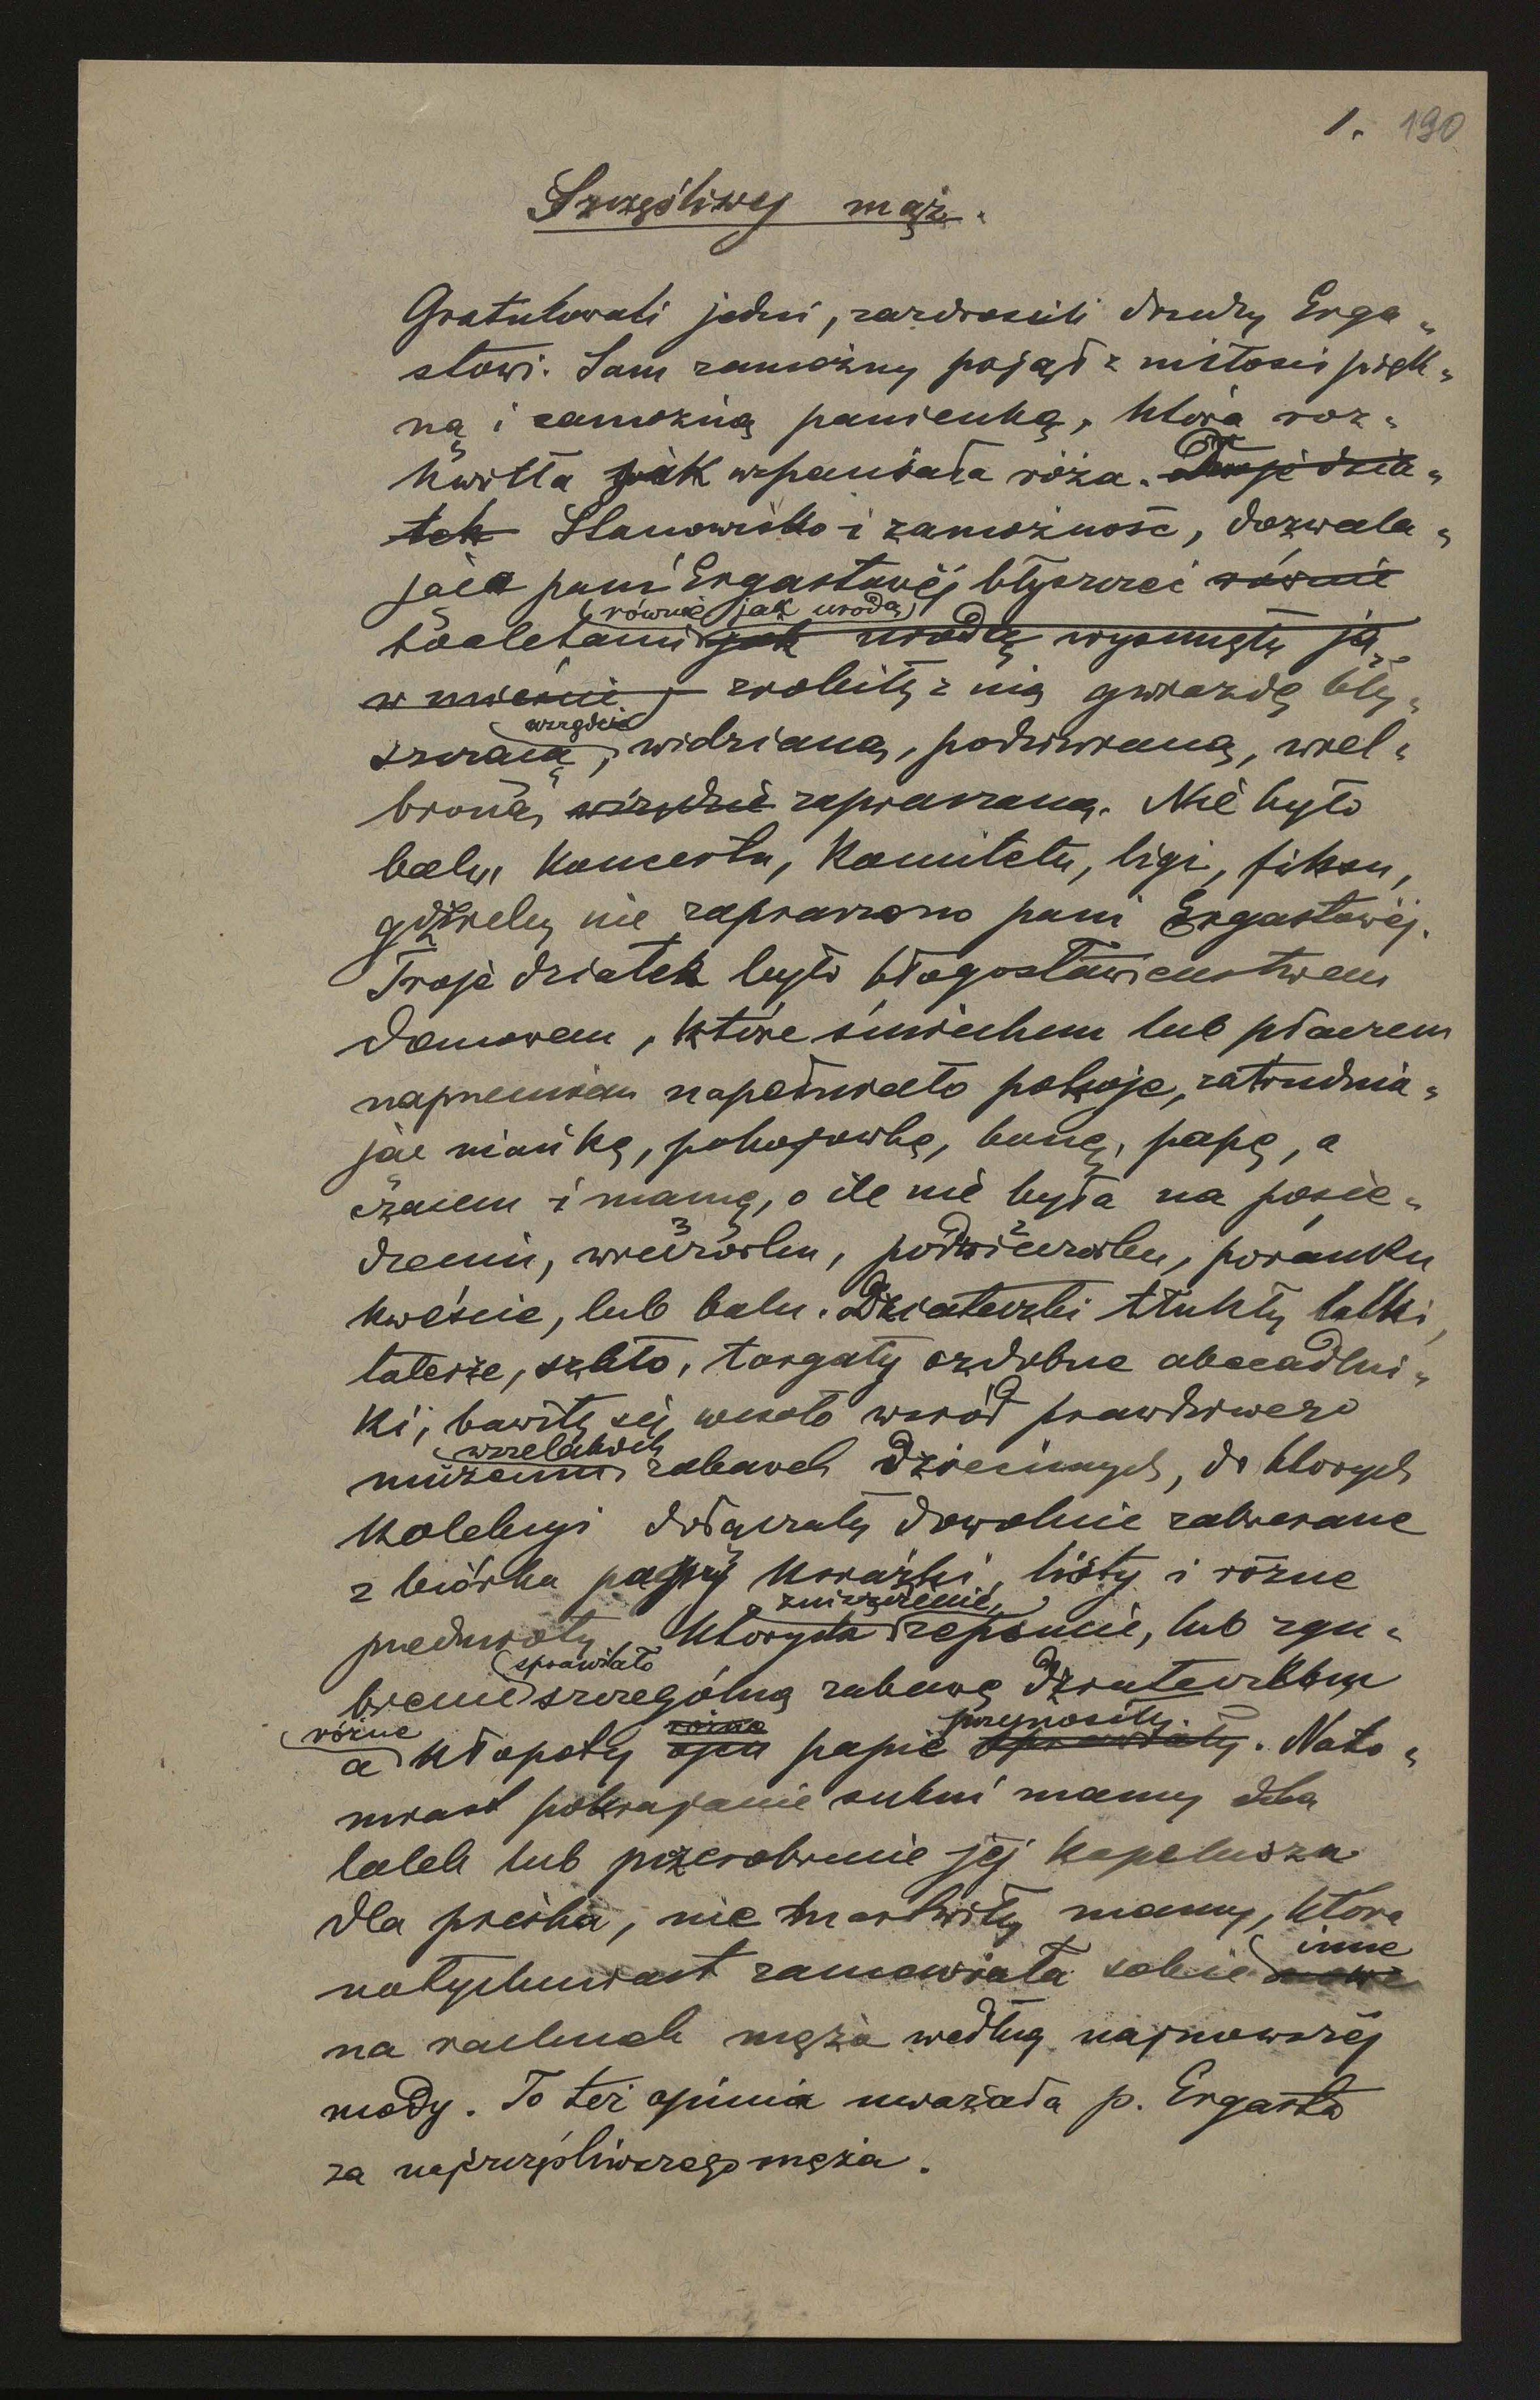 1. 190
Szczęśliwy mąż.
Gratulowali jedni, zazdrościli drudzy Erga„
stowi. Sam zamożny pojął z miłości pięk„
ną i zamożną panienkę, która roz„
kwitła jak wspaniała róża. Troje dzia„
tek Stanowisko i zamożność, dozwala„
jąca pani Ergastowéj błyszczeć równie
(równie jak urodą)
toaletami jak urodą wysunęły ją
w mieście, zrobiły z nią gwiazdę bły„
wszędzie
szczącą, widzianą, podziwianą, wiel„
bioną, wszędzie zapraszaną. Nie było
balu, koncertu, komitetu, ligi, fiksu,
gdzieby nie zapraszono pani Ergastowéj.
Troje dziatek było błogosławieństwem
domowem, które śmiechem lub płaczem
naprzemian napełniało pokoje, zatrudnia„
jąc niańkę, pokojówkę, bonę, papę, a
czasem i mamę, o ile nie była na posie„
dzeniu, wieczorku, podwieczorku, poranku
kweście, lub balu. Dziateczki tłukły lalki,
talerze, szkło, targały ozdobne abecadlni„
ki, bawiły się wesoło wśród prawdziwego
wszelakich
muzeum zabawek dziecinnych, do których
kolekcyi dołączały dowolnie zabierane
z biórka papy książki, listy i różne
zniszczenie,
przedmioty, których zepsucie, lub zgu„
sprawiało
bienie szczególną zabawę dziateczkom
różne różne przynosiły.
a kłopoty ojcu papie sprawiały. Nato„
miast pokrajanie sukni mamy dla
lalek lub przerobienie jéj kapelusza
dla pieska, nie martwiły mamy, która
inne
natychmiast zamawiała sobie nowe
na rachunek męża według najnowszéj
mody. To też opinia uważała p. Ergasta
za najszczęśliwszego męża.